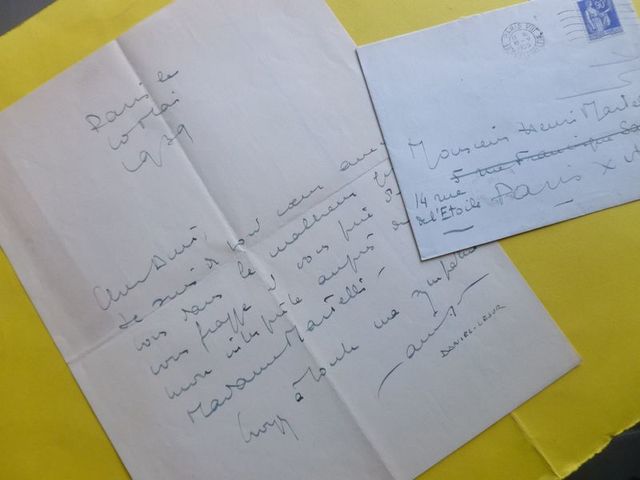 Paris le
10 Mai
1939
Cher Ami,
Je suis de tout cœur avec
vous dans le malheur qui
vous frappe et vous prie d'
mon interprète auprès de
Madame Martelli -
Croyez
à toute ma sympathie
amitiés
DANIEL-LESUR
Monsieur Henri Martelli
5 rue Francisque Sa
14 rue
de l'Etoile
Paris X